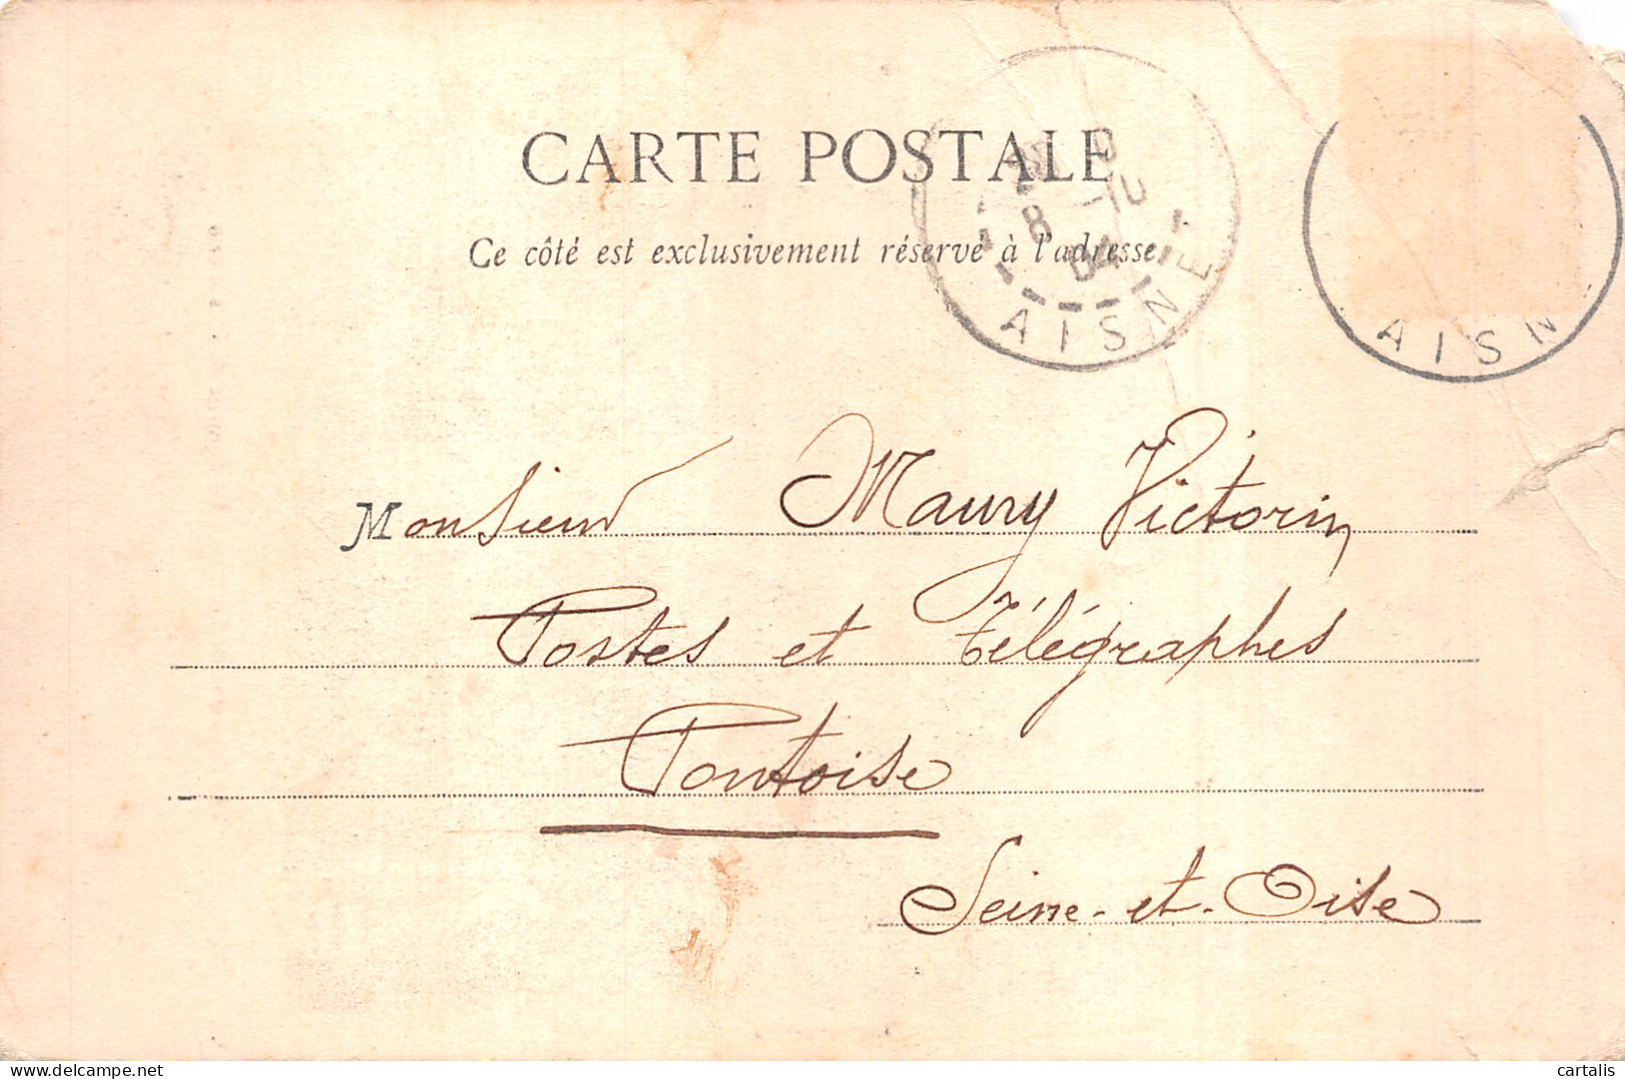 CARTE POSTALE
Ce côté est exclusivement réservé à l'adresse
8 -10
04
AISNE
AISN
Monsieur Maury Victorin
Postes et Télégraphes
Pontoise
Seine-et-Oise
delcampe.net
cartalis